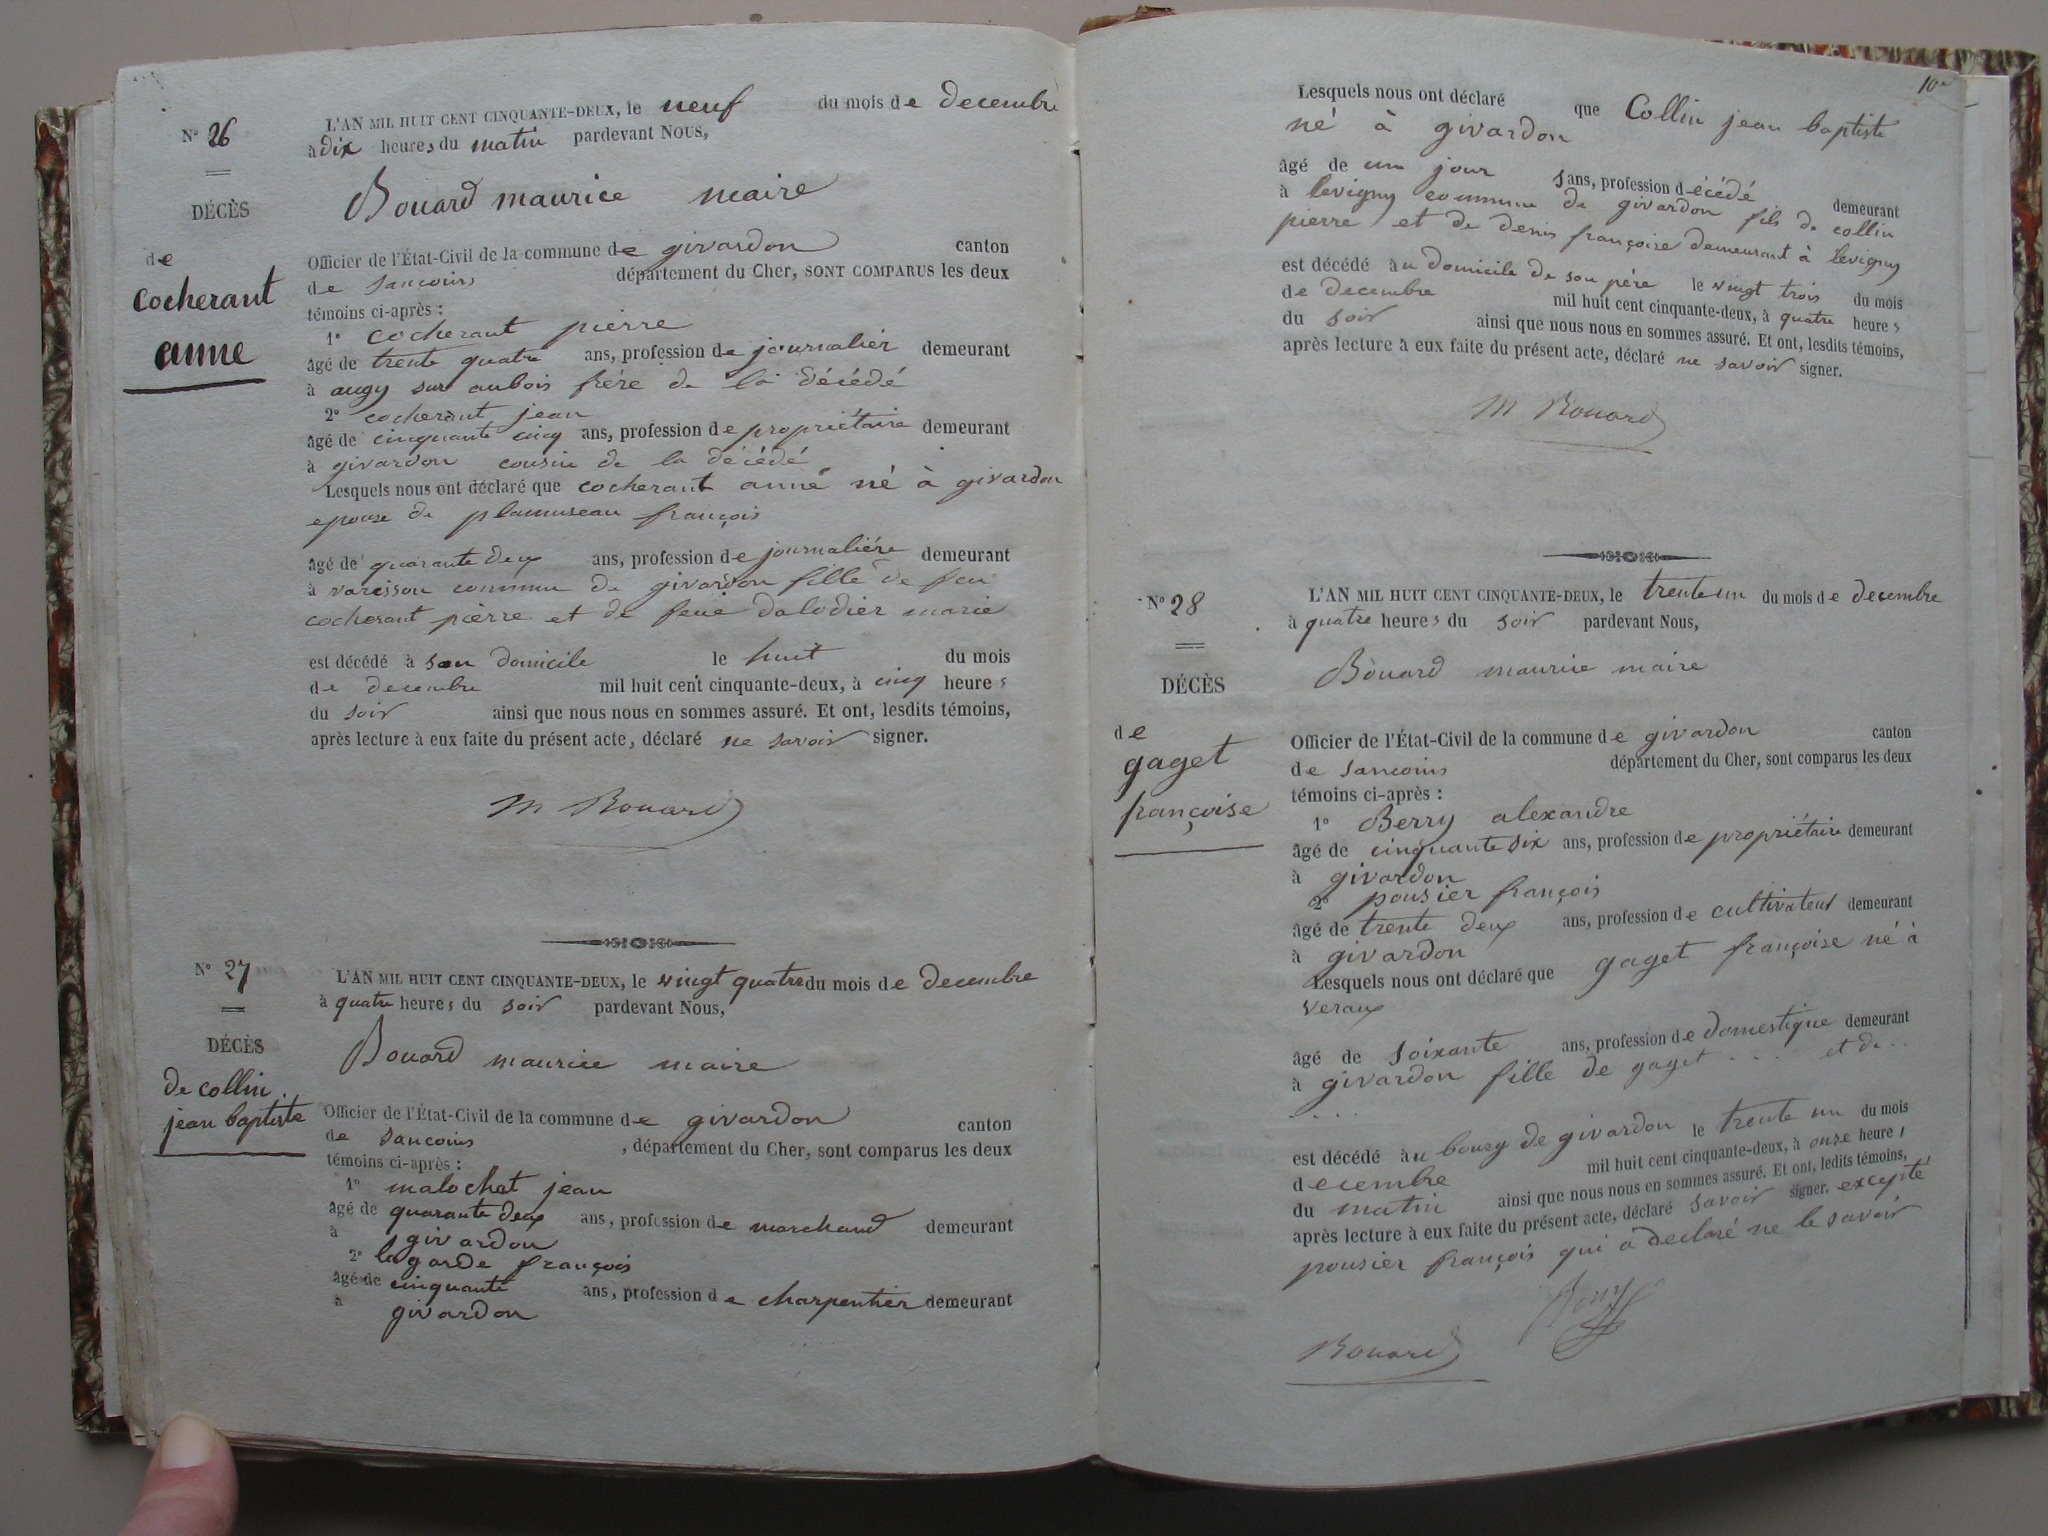 N° 26
DÉCÈS
de
cocherant
anne
L'AN MIL HUIT CENT CINQUANTE-DEUX, le neuf du mois de decembre
à dix heures du matin pardevant Nous,
Bouard maurice maire
Officier de l'État-Civil de la commune de givardon canton
de sancoins département du Cher, SONT COMPARUS les deux
témoins ci-après :
1° cocherant pierre
âgé de trente quatre ans, profession de journalier demeurant
à augy sur aubois frére de la décédé
2° cocherant jean
âgé de cinquante cinq ans, profession de propriétaire demeurant
à givardon cousin de la décédé
Lesquels nous ont déclaré que cocherant anne né à givardon
epouse de plamuseau françois
âgé de quarante deux ans, profession de journaliére demeurant
à varisson commune de givardon fille de feu
cocherant pierre et de feue dalodier marie
est décédé à son domicile le huit du mois
de decembre mil huit cent cinquante-deux, à cinq heures
du soir ainsi que nous nous en sommes assuré. Et ont, lesdits témoins,
après lecture à eux faite du présent acte, déclaré ne savoir signer.
M Bouard
N° 27
DÉCÈS
de collin
jean baptiste
L'AN MIL HUIT CENT CINQUANTE-DEUX, le vingt quatre du mois de decembre
à quatre heures du soir pardevant Nous,
Bouard maurice maire
Officier de l'État-Civil de la commune de givardon canton
de sancoins , département du Cher, sont comparus les deux
témoins ci-après :
1° malochet jean
âgé de quarante deux ans, profession de marchand demeurant
à givardon
2° lagarde françois
âgé de cinquante ans, profession de charpentier demeurant
à givardon
10
Lesquels nous ont déclaré que Collin jean baptiste
né à givardon
âgé de un jour sans, profession décédé demeurant
à levigny commune de givardon fils de collin
pierre et de denis françoise demeurant à levigny
est décédé au domicile de son pére le vingt trois du mois
de decembre mil huit cent cinquante-deux, à quatre heures
du soir ainsi que nous nous en sommes assuré. Et ont, lesdits témoins,
après lecture à eux faite du présent acte, déclaré ne savoir signer.
M Bouard
N° 28
DÉCÈS
de
gaget
françoise
L'AN MIL HUIT CENT CINQUANTE-DEUX, le trente un du mois de decembre
à quatre heures du soir pardevant Nous,
Bouard maurice maire
Officier de l'État-Civil de la commune de givardon canton
de sancoins département du Cher, sont comparus les deux
témoins ci-après :
1° Berry alexandre
âgé de cinquante six ans, profession de propriétaire demeurant
à givardon
2° pousier françois
âgé de trente deux ans, profession de cultivateur demeurant
à givardon
Lesquels nous ont déclaré que gaget françoise né à
veraux
âgé de soixante ans, profession de domestique demeurant
à givardon fille de gaget . . . et de . .
. . . .
est décédé au bourg de givardon le trente un du mois
decembre mil huit cent cinquante-deux, à onze heures
du matin ainsi que nous nous en sommes assuré. Et ont, ledits témoins,
après lecture à eux faite du présent acte, déclaré savoir signer. excepté
pousier françois qui a declaré ne le savoir
Berry
Bouard